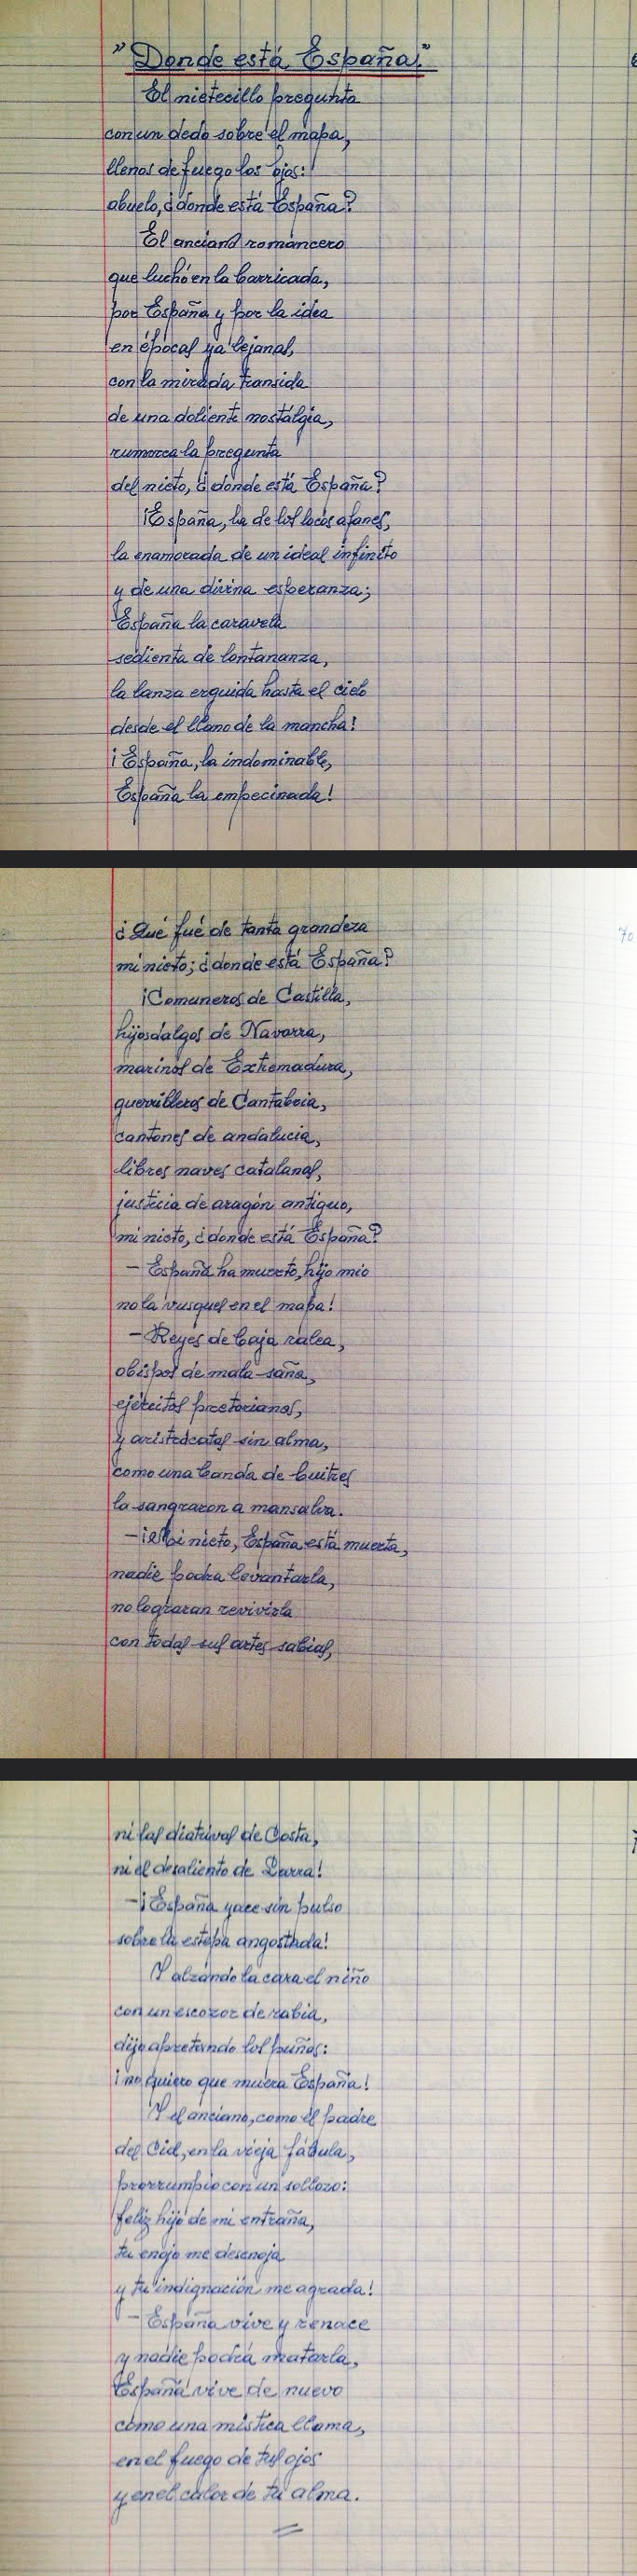 "Donde está España."
El nietecillo pregunta
con un dedo sobre el mapa,
llenos de fuego los ojos:
abuelo, ¿donde está España?
El anciano romancero
que luchó en la barricada,
por España y por la idea
en épocas ya lejanas,
con la mirada transida
de una doliente nostálgia,
rumorea la pregunta
del nieto, ¿donde está España?
¡España, la de los locos afanes,
la enamorada de un ideal infinito
y de una divina esperanza;
España la caravela
sedienta de lontananza,
la lanza erguida hasta el cielo
desde el llano de la mancha!
¡España, la indominable,
España la empecinada!
¿Qué fué de tanta grandeza
70
mi nieto; ¿donde está España?
¡Comuneros de Castilla,
hijosdalgos de Navarra,
marinos de Extremadura,
guerrilleros de Cantabria,
cantones de andalucia,
libres naves catalanas,
justicia de aragón antiguo,
mi nieto, ¿donde está España?
- España ha muerto, hijo mio
no la vusques en el mapa!
- Reyes de baja ralea,
obispos de mala saña,
ejércitos pretorianos,
y aristócratas sin alma,
como una banda de buitres
la sangraron a mansalva.
- Mi nieto, España está muerta,
nadie podra levantarla,
no lograran revivirla
con todas sus artes sabias,
ni las diatrivas de Costa,
ni el desaliento de Larra!
- ¡España yace sin pulso
sobre la estepa angostada!
Y alzando la cara el niño
con un escozor de rabia,
dijo apretando los puños:
¡no quiero que muera España!
Y el anciano, como el padre
del Cid, en la vieja fábula,
prorrumpio con un sollozo:
feliz hijo de mi entraña,
tu enojo me desenoja
y tu indignación me agrada!
- España vive y renace
y nadie podrá matarla,
España vive de nuevo
como una mistica llama,
en el fuego de tus ojos
y en el calor de tu alma.